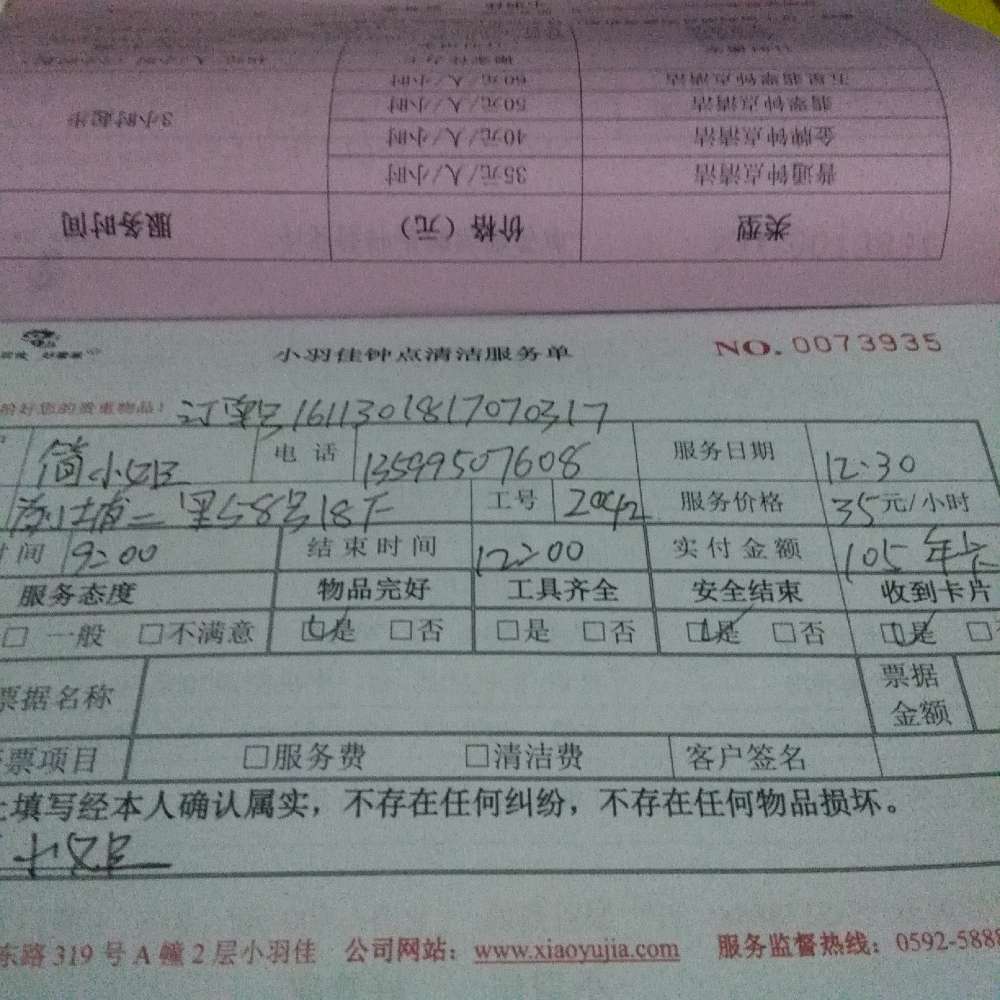 五星翡翠钟点清洁 60元/人/小时
翡翠钟点清洁 50元/人/小时
金牌钟点清洁 40元/人/小时 3小时起步
普通钟点清洁 35元/人/小时
类型 价格（元） 服务时间
小羽佳钟点清洁服务单 NO.0073935
您的贵重物品！ 订单号1611301817070317
简小姐 电话 13599507608 服务日期 12.30
二里58号18 工号 2042 服务价格 35元/小时
时间 9:00 结束时间 12:00 实付金额 105 年卡
服务态度 物品完好 工具齐全 安全结束 收到卡片
□ 一般 □不满意 □是 □否 □是 □否 □是 □否 □是
票据名称 票据金额
票项目 □服务费 □清洁费 客户签名
上填写经本人确认属实，不存在任何纠纷，不存在任何物品损坏。
东路319号A幢2层小羽佳 公司网站：www.xiaoyujia.com 服务监督热线：0592-5888